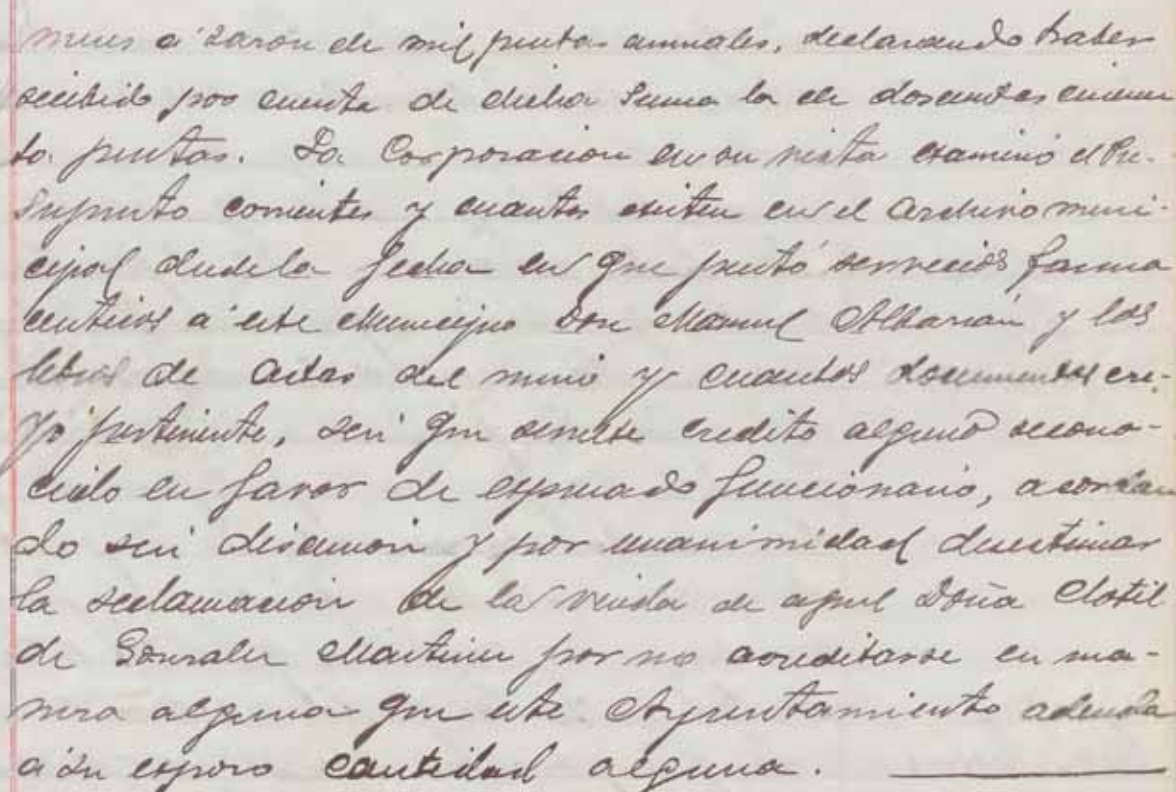 meses á razon de mil pesetas anuales, declarando haber
recibido por cuenta de dicha suma la de doscientas cincuen
ta pesetas. La Corporacion en su vista examinó el Pre-
supuesto corriente y cuantos existen en el Archivo muni-
cipal desde la fecha en que prestó servicios farma
ceuticos a este Municipio Don Manuel Albarián y los
libros de actas del mismo y cuantos documentos cre-
yó pertinente, sin que arroje credito alguno recono-
cido en favor de expresado funcionario, acordan
do sin discusion y por unanimidad desestimar
la reclamacion de la viuda de aquel Doña Clotil
de Gonzalez Martinez por no acreditarse en ma-
nera alguna que este Ayuntamiento adeuda
á su esposo cantidad alguna.